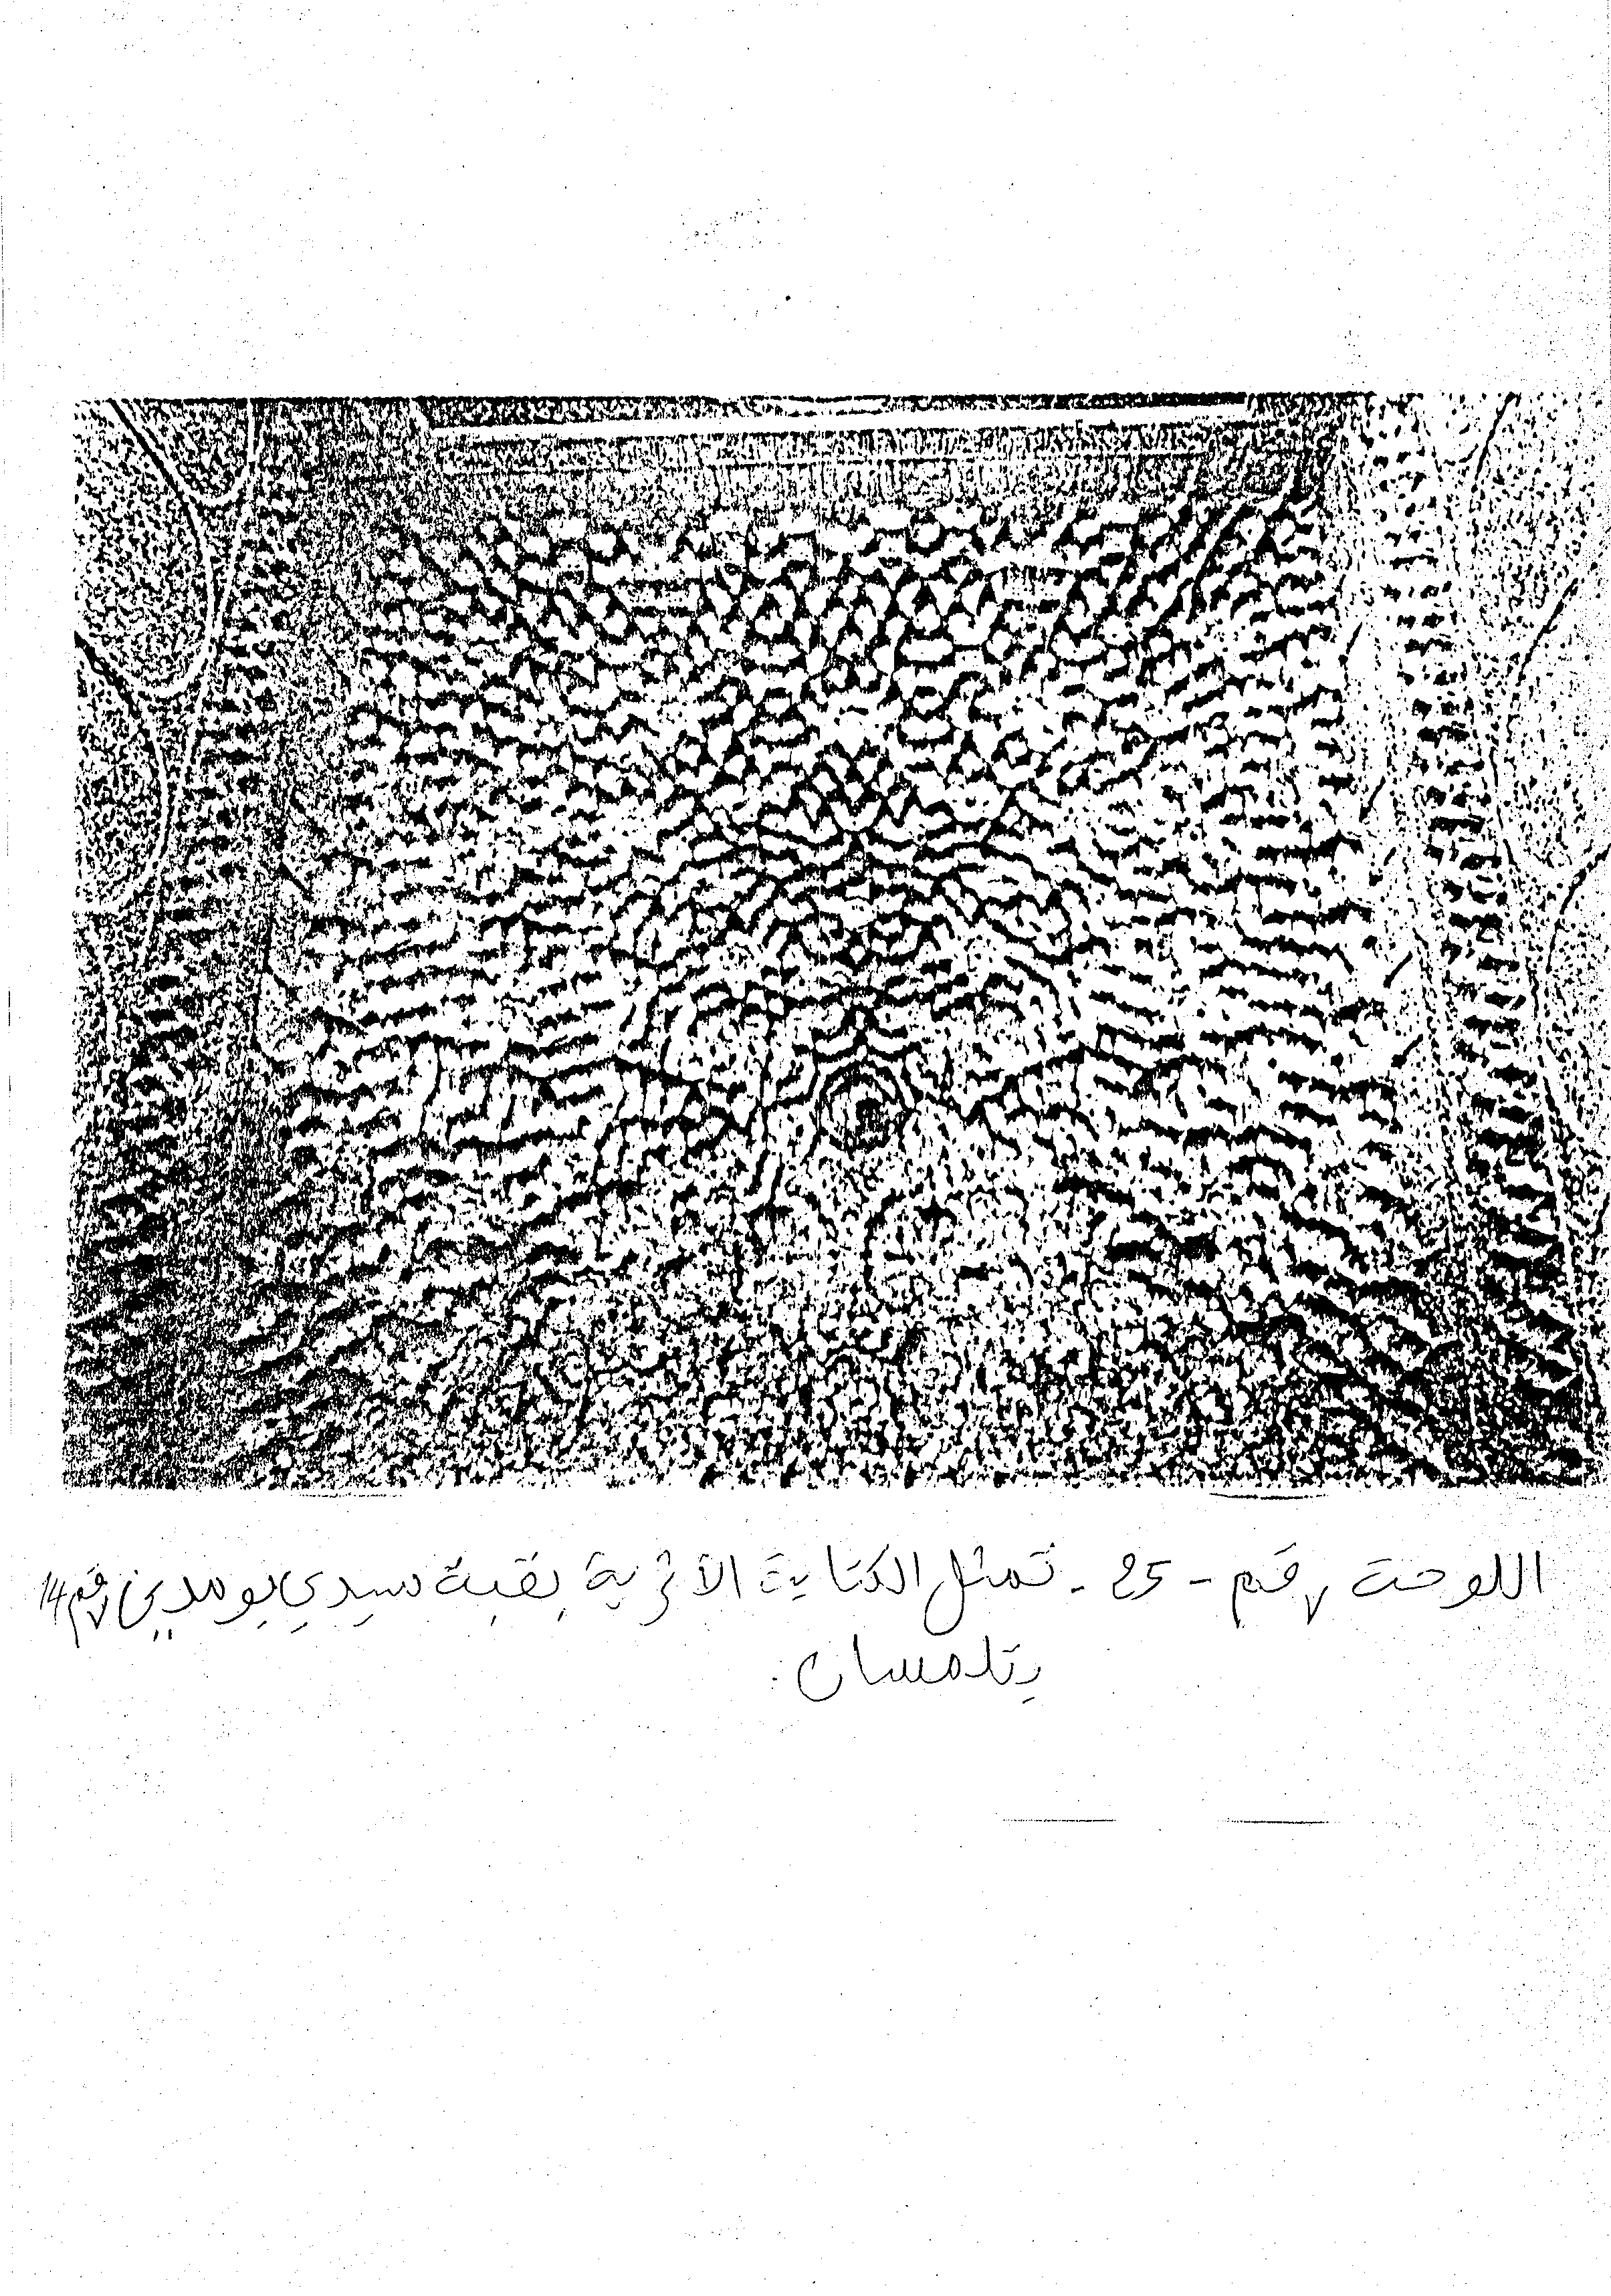 اللوحة رقم - 25 - تمثل الكتابة الأثرية بقبة سيدي بومدين رقم 14
بتلمسان.